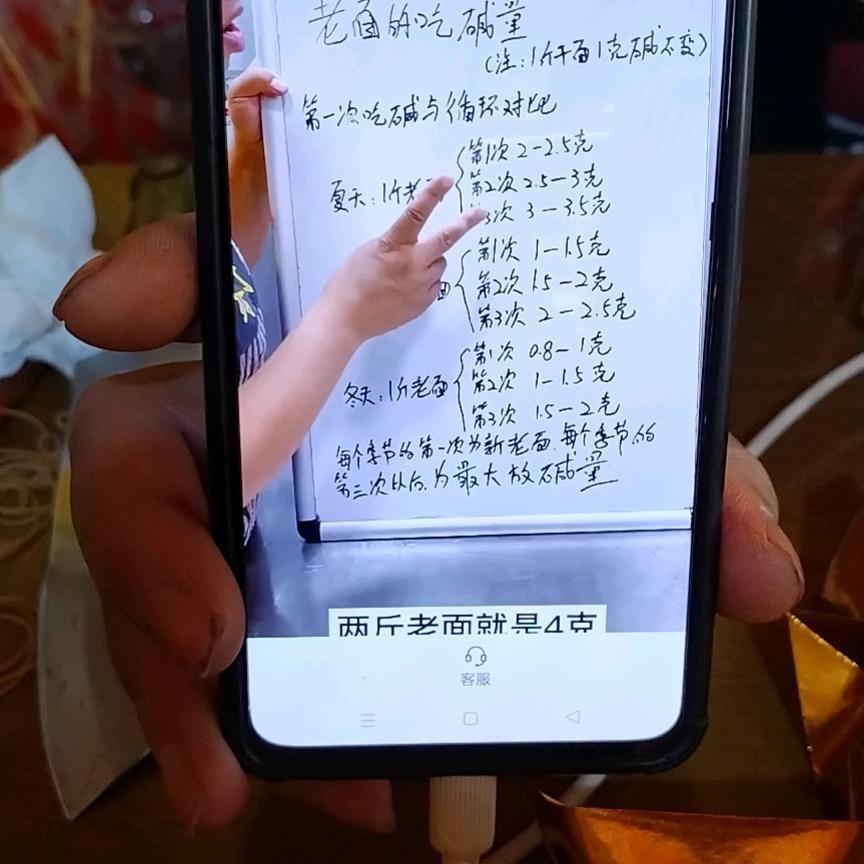 老面的吃碱量
(注:1斤干面1克碱不变)
第一次吃碱与循环对比
夏天:1斤老
第1次 2-2.5克
第2次 2.5-3克
3次 3-3.5克
面
第1次 1-1.5克
第2次 1.5-2克
第3次 2-2.5克
冬天:1斤老面
第1次 0.8-1克
第2次 1-1.5克
第3次 1.5-2克
每个季节的第一次为新老面.每个季节的
第三次以后.为最大放碱量
两斤老面就是4克
客服